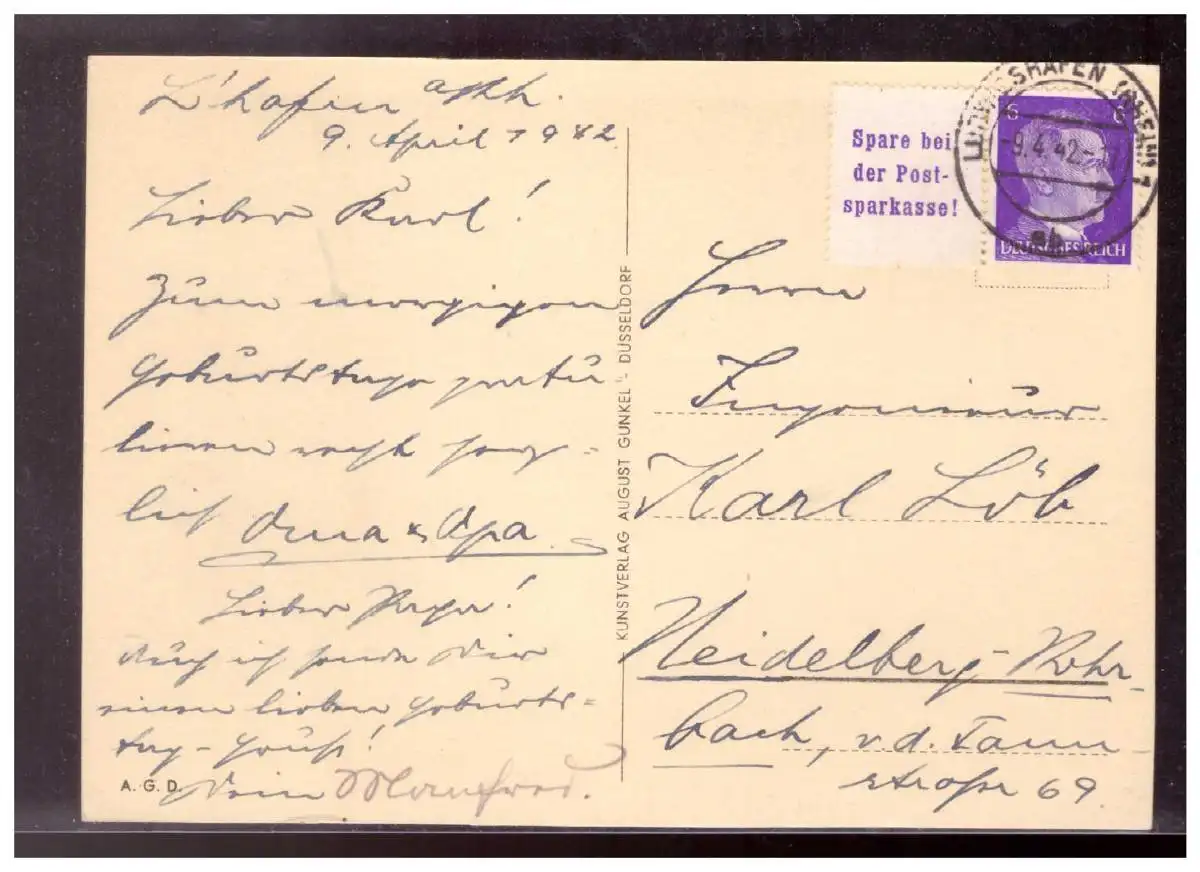 L'hafen a/Rh.
9. April 1942
Lieber Karl!
Zum morgigen
Geburtstage gratu
lieren recht herz-
lich Oma & Opa
Lieber Papa!
Auch ich sende Dir
einen lieben Geburts-
tag-Gruß!
Dein Manfred.
A. G. D.
KUNSTVERLAG AUGUST GUNKEL - DÜSSELDORF
Spare bei
der Post-
sparkasse!
6 6
DEUTSCHES REICH
LUDWIGSHAFEN (RHEIN) 1
-9.4.42-
Herrn
Ingenieur
Karl Löb
Heidelberg-Rohr-
bach, v.d. Tann
straße 69.